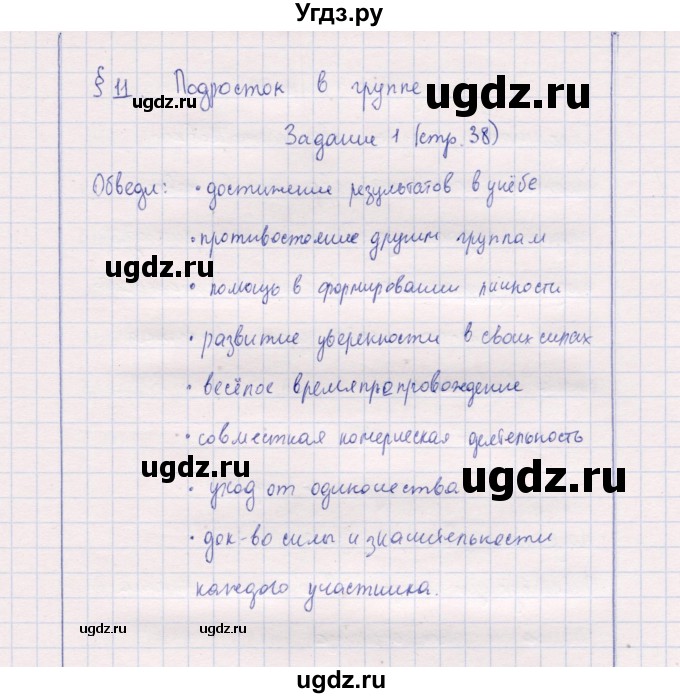 Угдз.ру
§ 11 Подросток в группе
ugdz.ru
ugdz.ru
Задание 1 (стр. 38)
Обведи: • достижение результатов в учёбе
• противостояние другим группам
ugdz.ru
• помощь в формировании личности
• развитие уверенности в своих силах
• весёлое времяпрепровождение
• совместная комерческая деятельность
ugdz.ru
ugdz.ru
• уход от одиночества
• док-во силы и значительности
каждого участника.
ugdz.ru
ugdz.ru
ugdz.ru